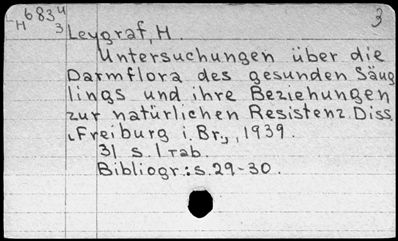 H 6834 3
3
Leygraf, H.
Untersuchungen über die
Darmflora des gesunden Säug
lings und ihre Beziehungen
zur natürlichen Resistenz. Diss.
Freiburg i. Br., 1939.
31 s. 1 tab.
Bibliogr.: s. 29-30.